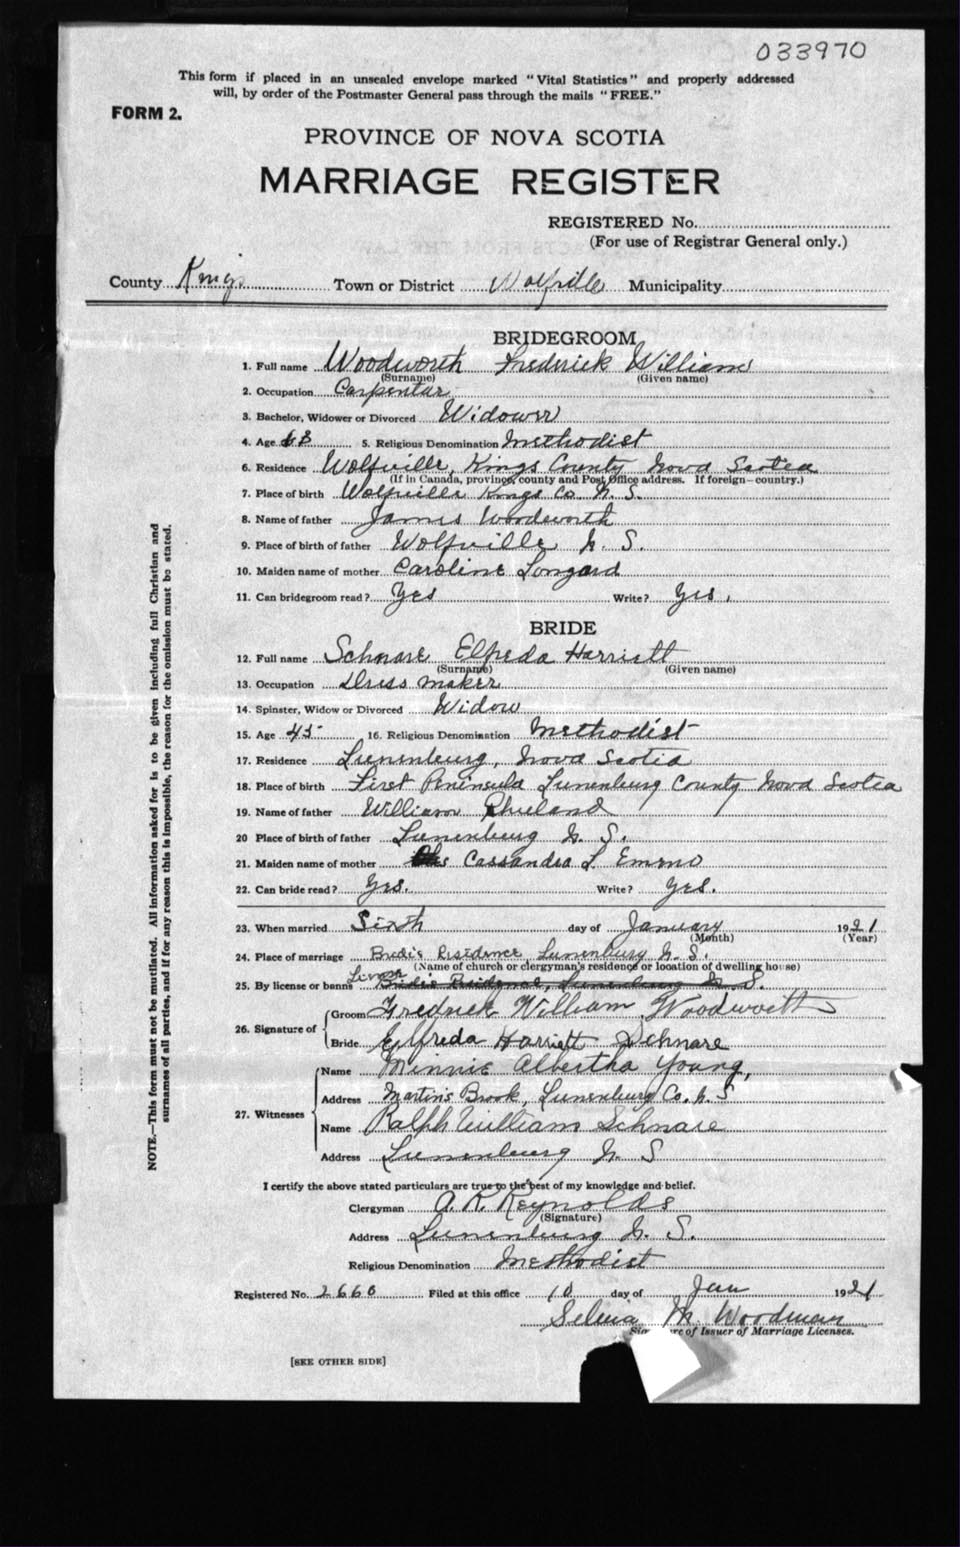 033970
This form if placed in an unsealed envelope marked "Vital Statistics" and properly addressed
will, by order of the Postmaster General pass through the mails "FREE."
FORM 2.
PROVINCE OF NOVA SCOTIA
MARRIAGE REGISTER
REGISTERED No.
(For use of Registrar General only.)
County Kings Town or District Wolfville Municipality
BRIDEGROOM
1. Full name Woodworth Frederick William
(Surname) (Given name)
2. Occupation Carpenter
3. Bachelor, Widower or Divorced Widower
4. Age 63 5. Religious Denomination Methodist
6. Residence Wolfville, Kings County Nova Scotia
(If in Canada, province, county and Post Office address. If foreign—country.)
7. Place of birth Wolfville Kings Co. N. S.
8. Name of father James Woodworth
9. Place of birth of father Wolfville N. S.
10. Maiden name of mother Caroline Longard
11. Can bridegroom read? Yes Write? Yes.
BRIDE
12. Full name Schnare Elfreda Harriett
(Surname) (Given name)
13. Occupation Dress maker
14. Spinster, Widow or Divorced Widow
15. Age 45 16. Religious Denomination Methodist
17. Residence Lunenburg, Nova Scotia
18. Place of birth First Peninsula Lunenburg County Nova Scotia
19. Name of father William
20 Place of birth of father Lunenburg N. S.
21. Maiden name of mother Cassandra L
22. Can bride read? Yes. Write? Yes.
23. When married Sixth day of January 1921
(Month) (Year)
24. Place of marriage Bride's Residence, Lunenburg N. S.
(Name of church or clergyman's residence or location of dwelling house)
25. By license or banns License Bride's Residence, Lunenburg N. S.
26. Signature of Groom Fredrick William Woodworth
Bride Elfreda Harriett Schnare
27. Witnesses Name Minnie Albertha Young,
Address Martin's Brook, Lunenburg Co. N. S
Name Ralph William Schnare
Address Lunenburg N. S
I certify the above stated particulars are true to the best of my knowledge and belief.
Clergyman A. R. Reynolds
(Signature)
Address Lunenburg N. S.
Religious Denomination Methodist
Registered No. 2660 Filed at this office 10 day of Jan 1921
Selina M. Woodman
Signature of Issuer of Marriage Licenses.
[SEE OTHER SIDE]
NOTE.—This form must not be mutilated. All information asked for is to be given including full Christian and
surnames of all parties, and if for any reason this is impossible, the reason for the omission must be stated.